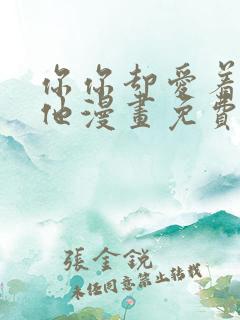 你你却愛着
他漫畫免費
張金銳
未经同意禁止转载